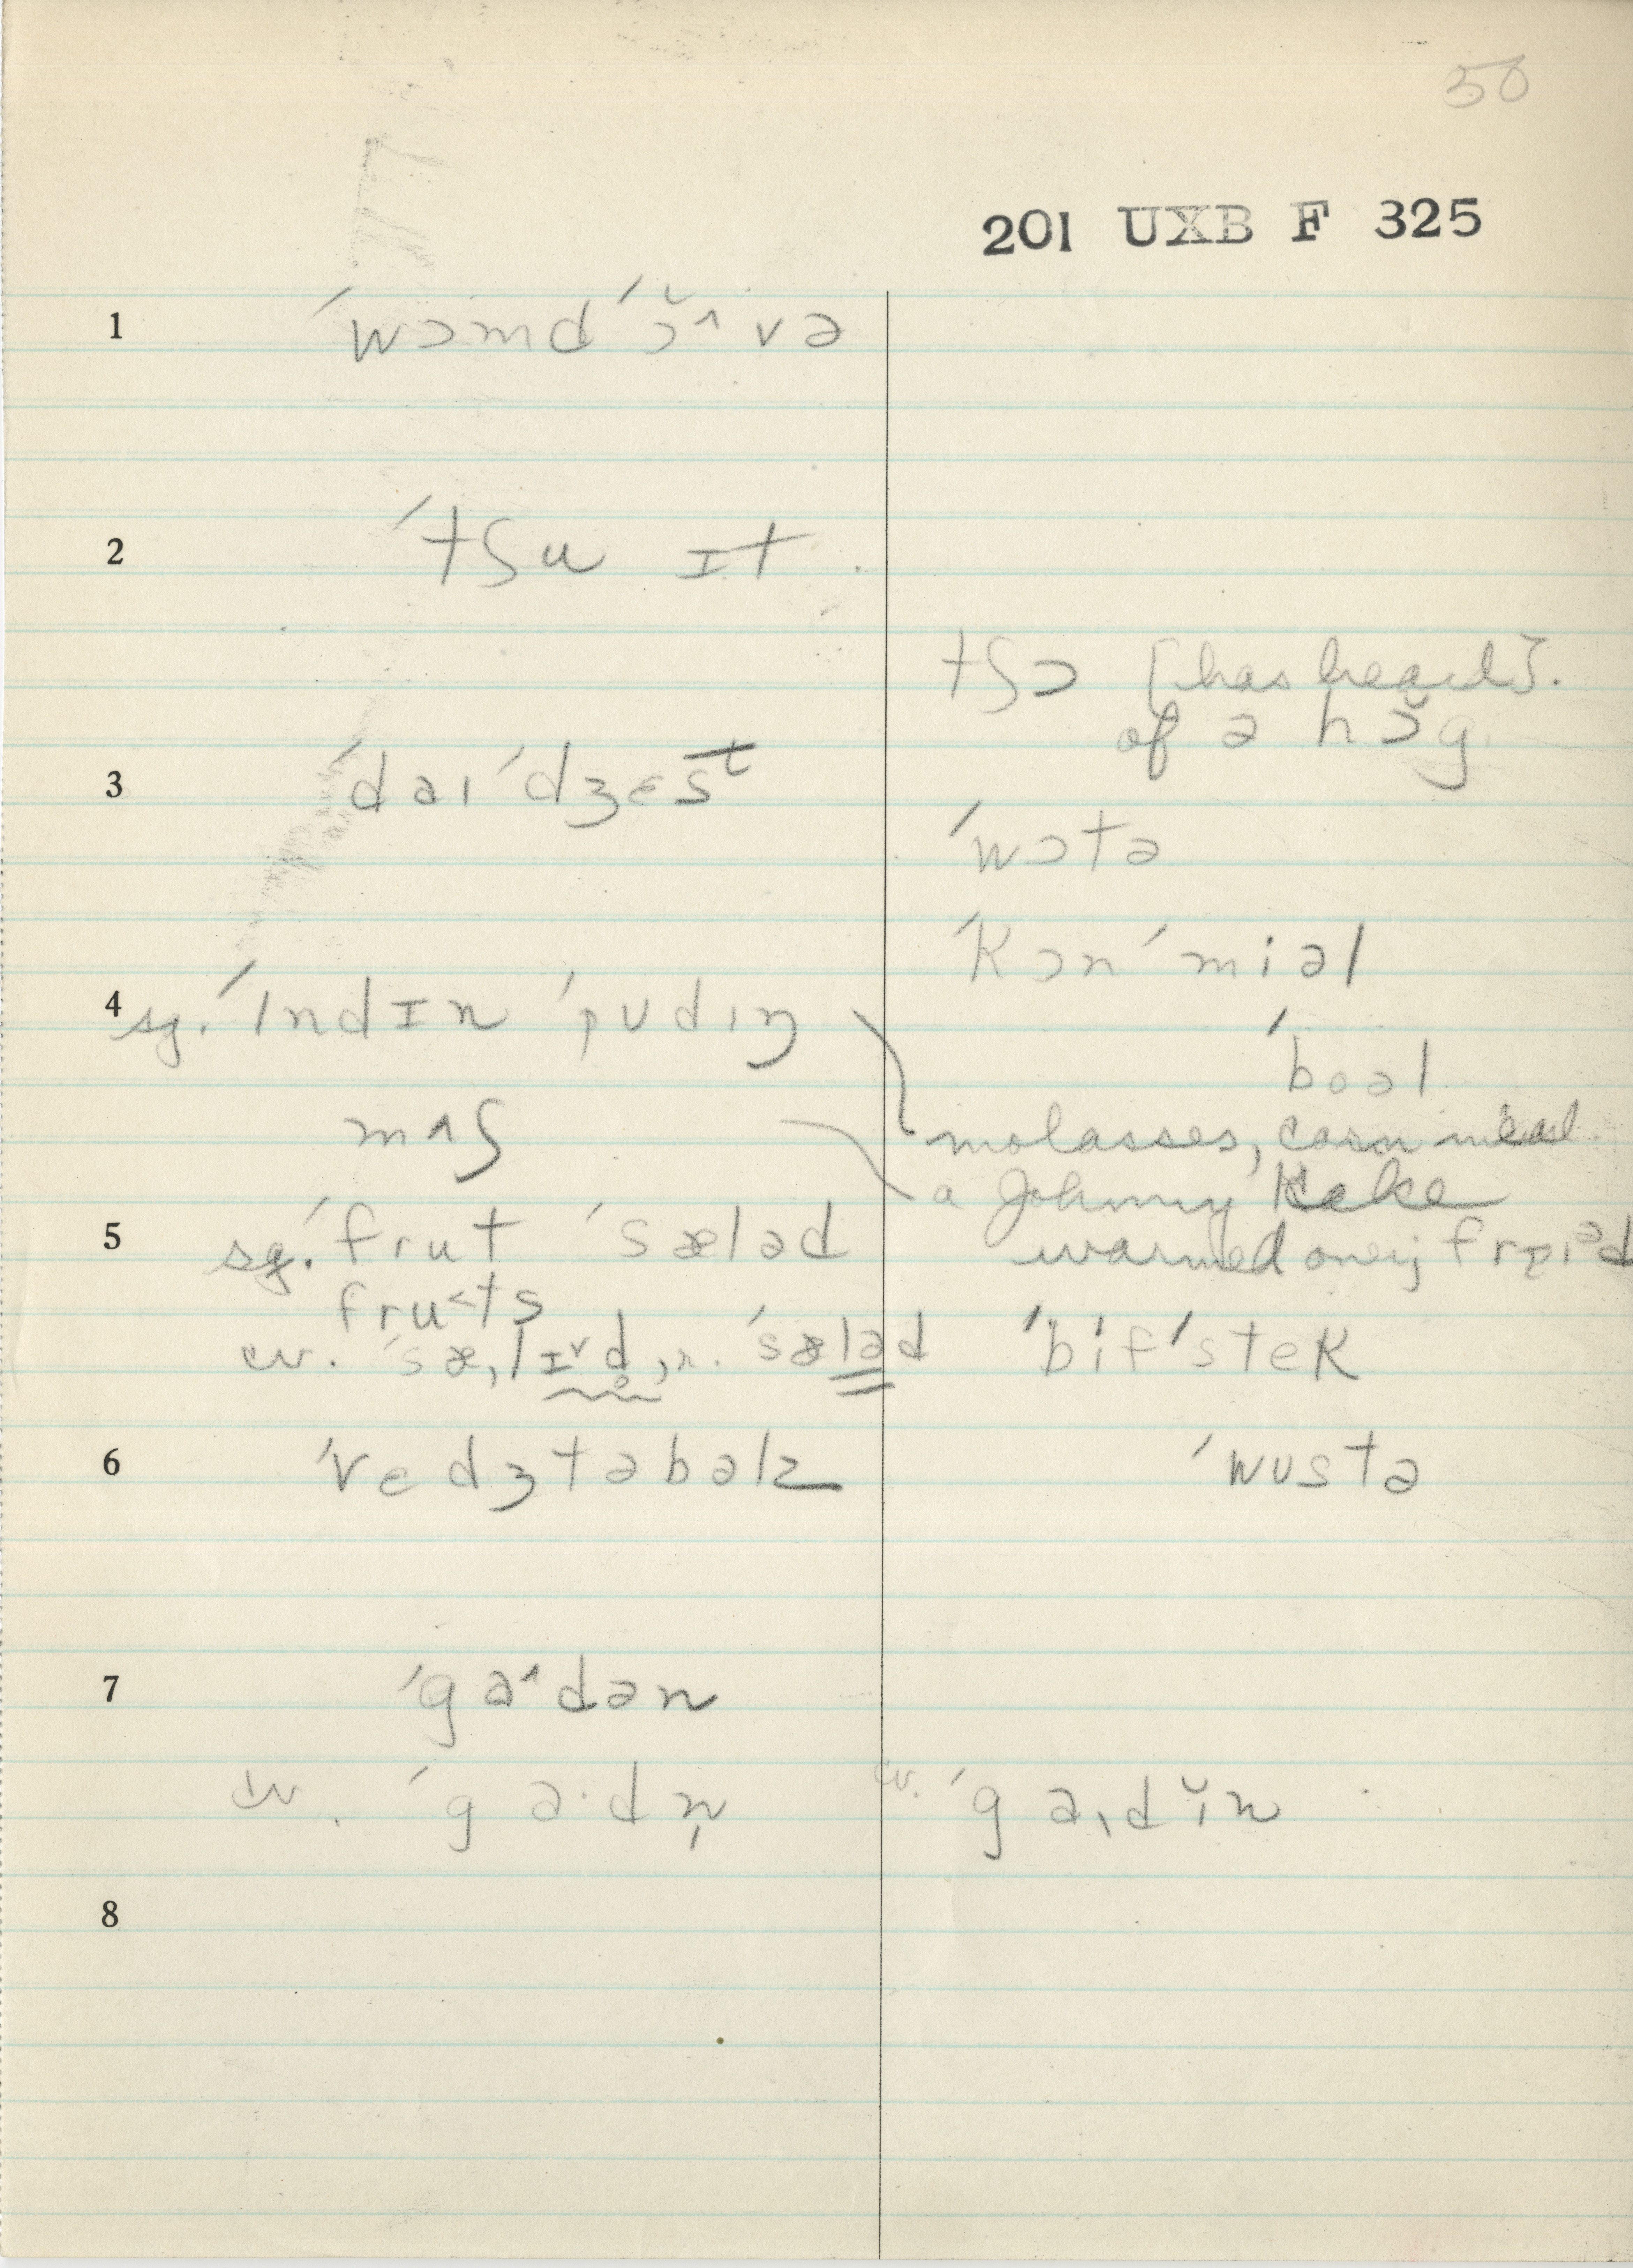 50
201 UXB F 325
1 ˊwɔmdˊɔ̆^və
2 ˊtʃu ɪt
tʃɔ [has heard].
of ə hɔ̆g
3 ˊdaɪˊdʒɛst
ˊwɔtə
ˊkɔnˊmiəl
4 sg. ˊɪndɪn ˊpʊdɪŋ
ˊboəl
mʌʃ
molasses, corn meal
a Johnny Kake
5 sg. ˊfrut ˊsæləd
warmed over; fraɪəd
fru<ts
cv. ˊsæ,lɪᵛd̥, r. ˊsæləd
ˊbifˊstek
6 ˊvedʒtəbəlz
ˊwʊstə
7 ˊga^dən
cv. ˊga·dn̩
cv. ˊga,dĭn
8